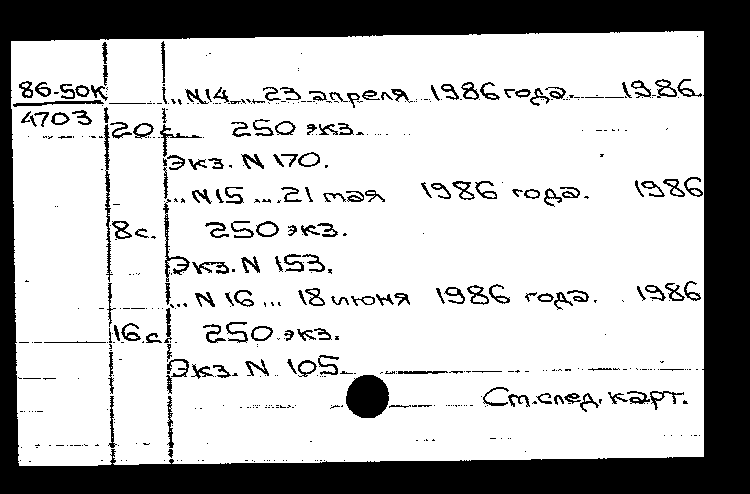 86-50К ... N14 ... 23 апреля 1986 года. 1986.
4703 20 с. 250 экз.
Экз. N 170.
... N15 ... 21 мая 1986 года. 1986
8 с. 250 экз.
Экз. N 153.
... N 16 ... 18 июня 1986 года. 1986
16 с. 250 экз.
Экз. N 105.
См. след. карт.